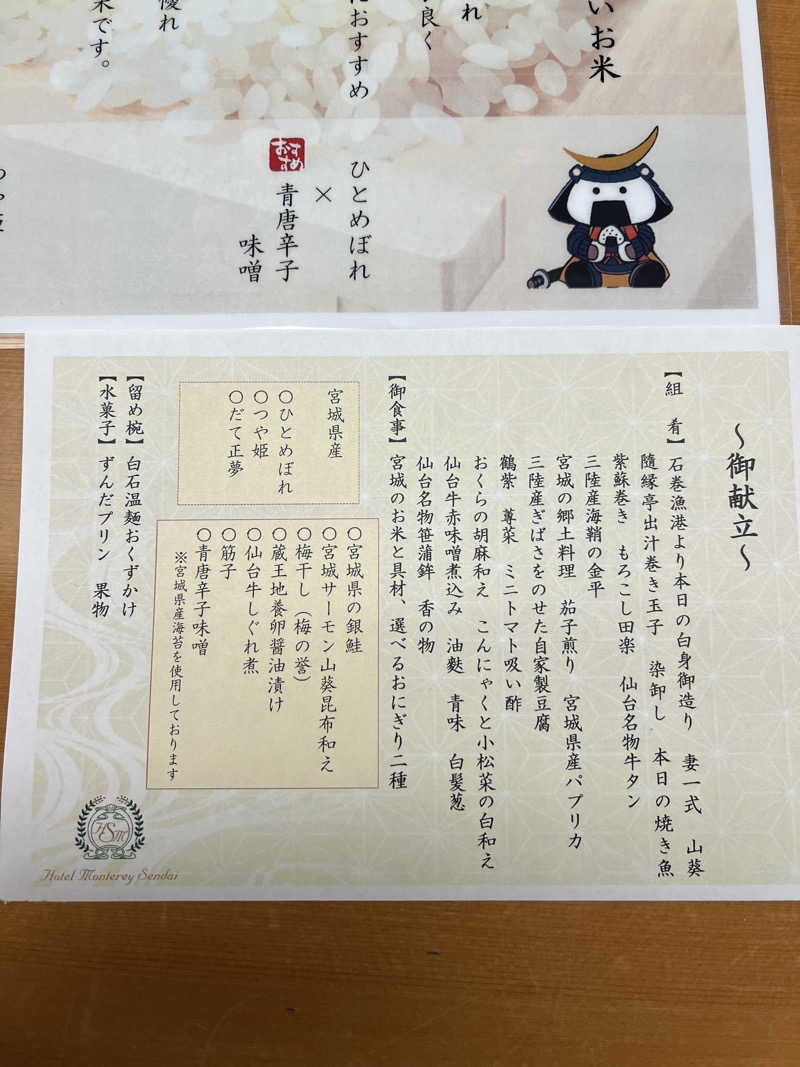 いお米
れ
良く
におすすめ
優れ
米です。
ひとめぼれ
×
おすすめ
青唐辛子
味噌
～御献立～
【組 肴】 石巻漁港より本日の白身御造り 妻一式 山葵
随縁亭出汁巻き玉子 染卸し 本日の焼き魚
紫蘇巻き もろこし田楽 仙台名物牛タン
三陸産海鞘の金平
宮城の郷土料理 茄子煎り 宮城県産パプリカ
三陸産ぎばさをのせた自家製豆腐
鶴紫 蓴菜 ミニトマト吸い酢
おくらの胡麻和え こんにゃくと小松菜の白和え
仙台牛赤味噌煮込み 油麩 青味 白髪葱
仙台名物笹蒲鉾 香の物
【御食事】 宮城のお米と具材、選べるおにぎり二種
宮城県産
〇ひとめぼれ
〇つや姫
〇だて正夢
〇宮城県の銀鮭
〇宮城サーモン山葵昆布和え
〇梅干し（梅の誉）
〇蔵王地養卵醤油漬け
〇仙台牛しぐれ煮
〇筋子
〇青唐辛子味噌
※宮城県産海苔を使用しております
【留め椀】 白石温麺おくずかけ
【水菓子】 ずんだプリン 果物
HSM
Hotel Monterey Sendai